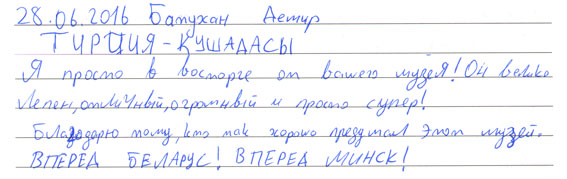 28.06.2016 Батухан Демир
ТУРЦИЯ-КУШАДАСЫ
Я просто в восторге от вашего музея! Он велико
лепен, отличный, огромный и просто супер!
Благодарю тому, кто так хорошо придумал этот музей.
ВПЕРЕД БЕЛАРУС! ВПЕРЕД МИНСК!